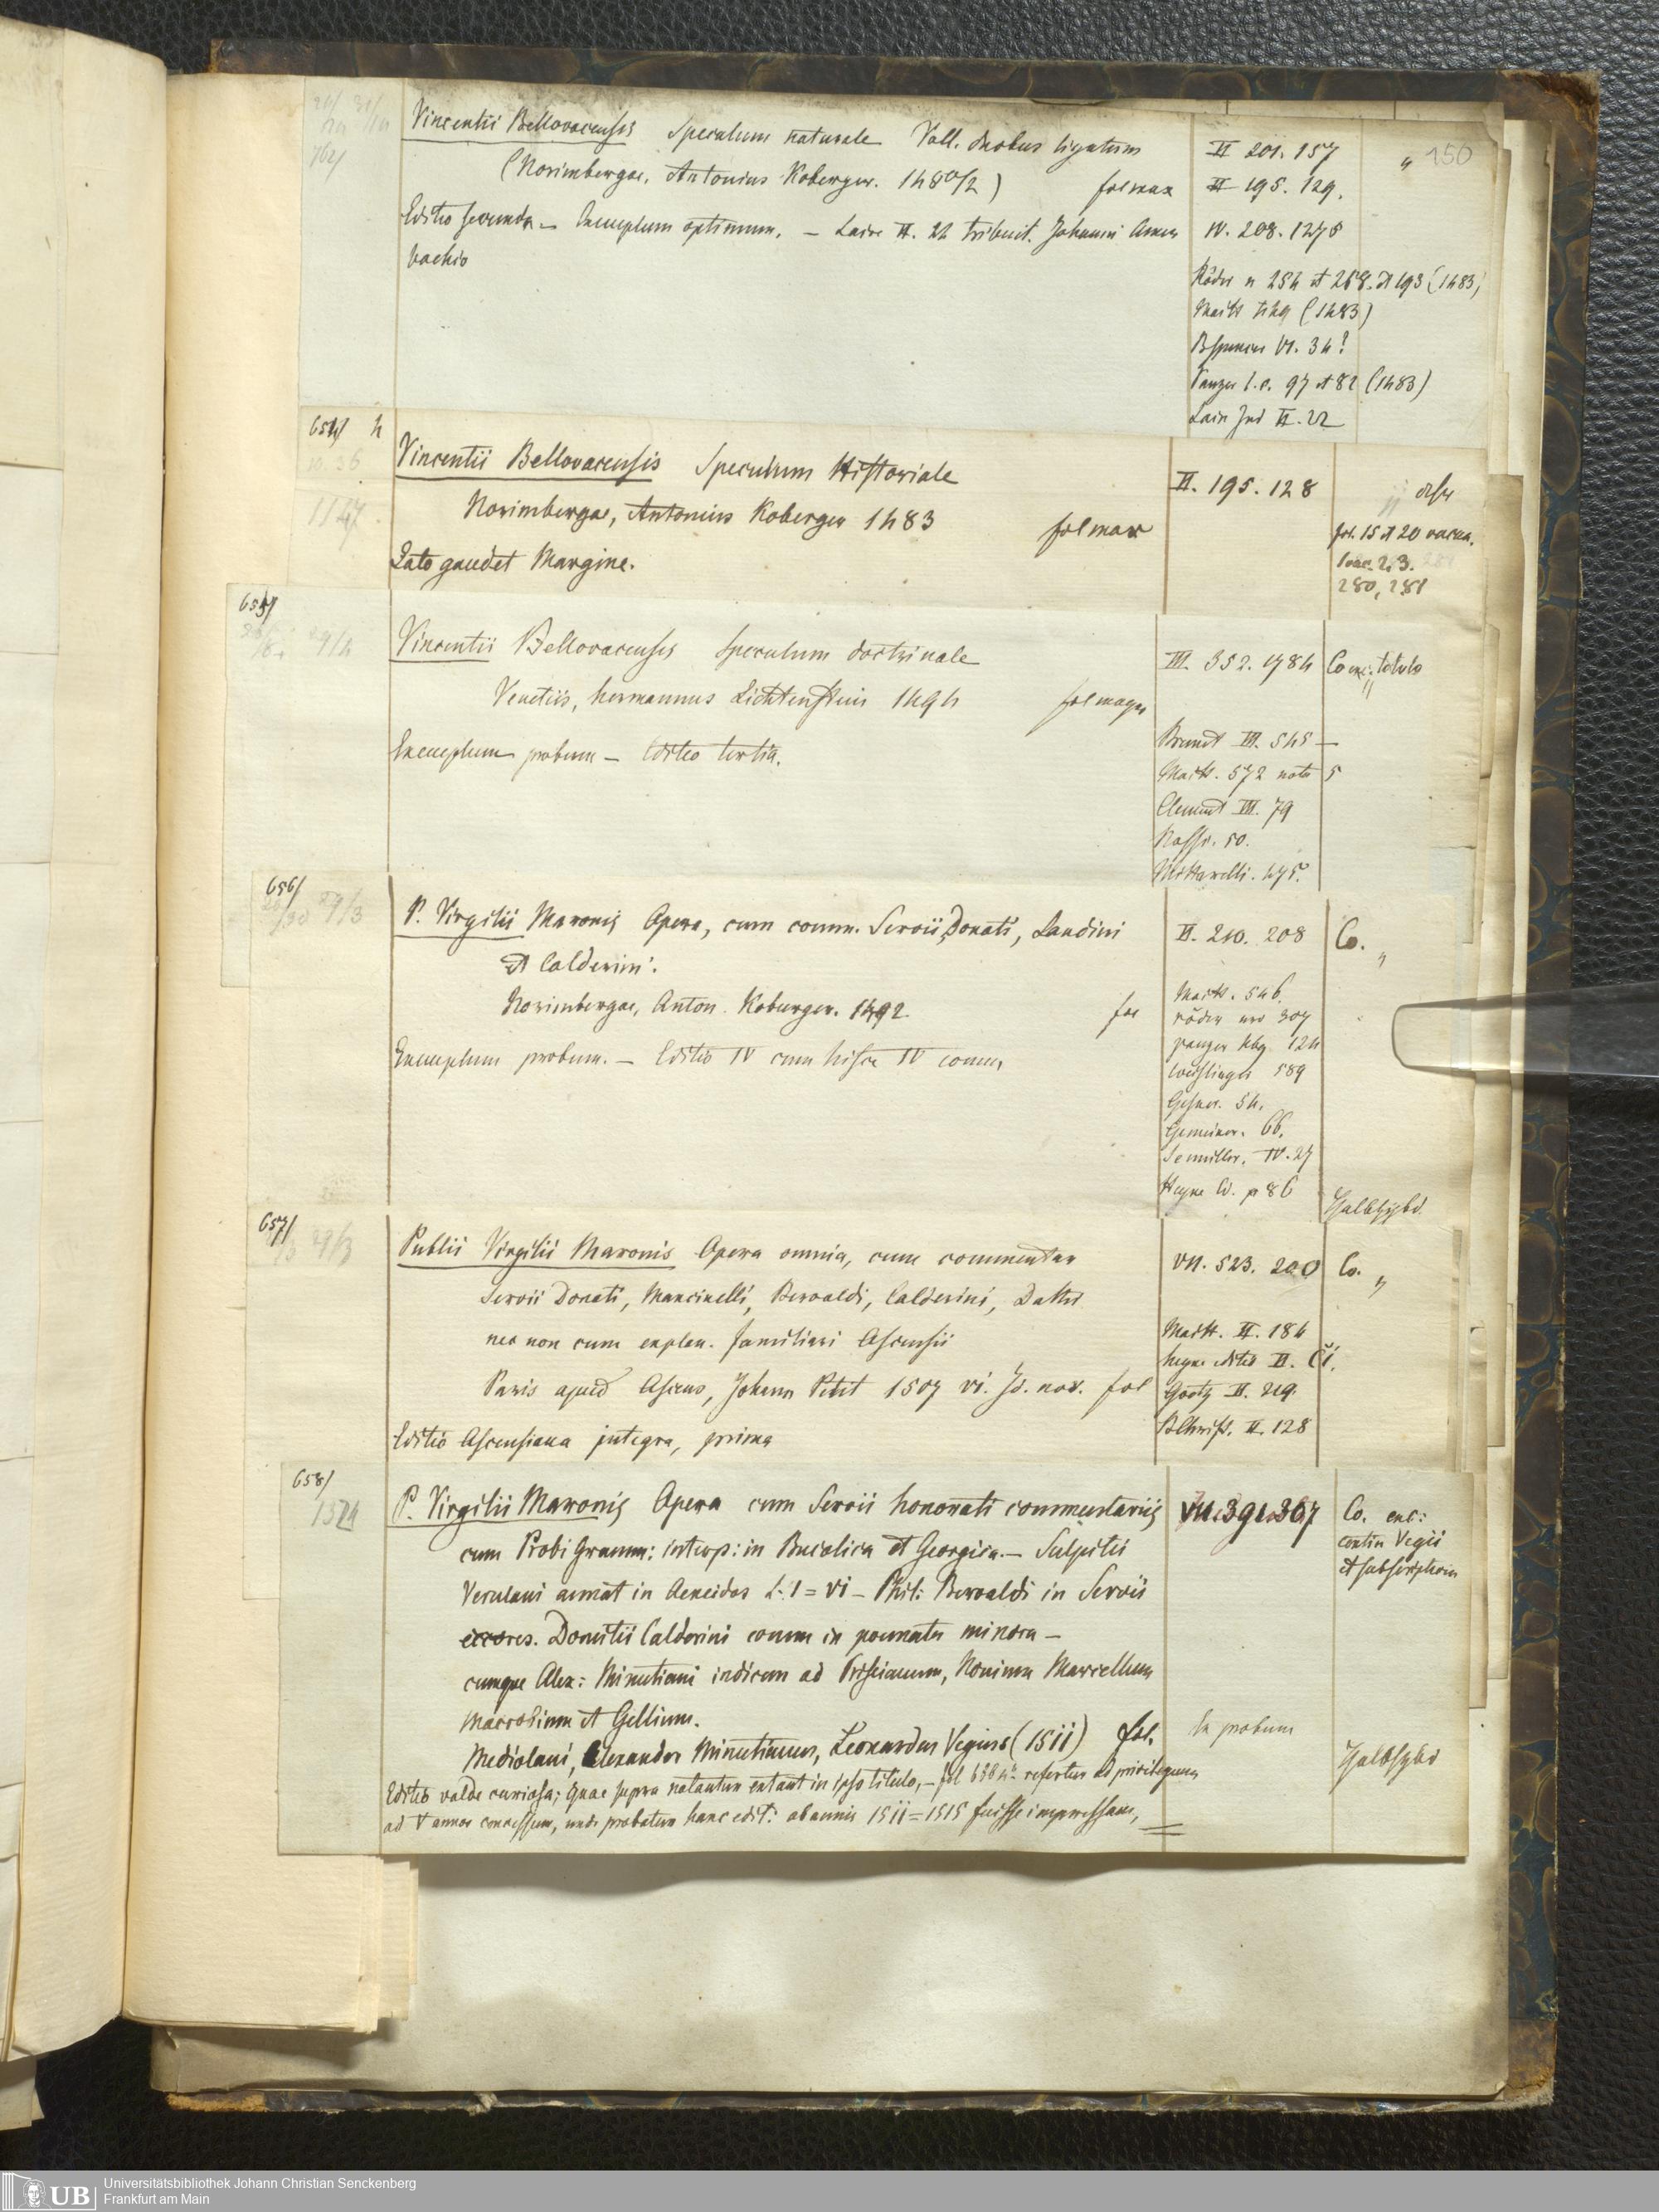 150
Vincentii Bellovacensis Speculum naturale Voll. duobus ligatum
(Norimbergae, Antonius Koberger. 1480/2) fol max
Editio secunda - Exemplum optimum. - Laire II. 22 tribuit. Johanni Amer
bachio
II 201. 157
II 195. 129.
IV. 208. 1275
Röder n 254 et 268. et 193 (1483)
Maitt (1483)
BSpencer VI. 34?
Panzer l.c. 97 et 82 (1483)
Laire Ind II. 22
654/ 2
1147
Vincentii Bellovacensis Speculum Historiale
Norimbergae, Antonius Koberger 1483 fol max
Lato gaudet Margine.
II. 195. 128
fol. 15 et 20 vacua.
vac. 2, 3.
280, 281
655/
29/2
Vincentii Bellovacensis Speculum doctrinale
Venetiis, hermannus Lichtenstein 1494 fol magn
Exemplum probum - Editio tertia.
III. 352. 1784
Co exc: titulo
Brunet III. 545 -
Maitt. 572 nota 5
Clement III. 79
Rossi. 50.
Mittarelli. 475.
656/
29/3
P. Virgilii Maronis Opera, cum comm. Servii, Donati, Landini
et Calderini.
Norimbergae, Anton. Koburger. 1492. fol
Exemplum probum. - Editio IV cum hisce IV comm
II. 210. 208
Co. "
Maitt. 546.
röder nro 307
panzer Nbg 124
weislinger 589
Gesner. 54.
Gemeiner. 66.
Semiller. IV. 27
Heyne p 86
Halbhfzbd.
657/
29/3
Publii Virgilii Maronis Opera omnia, cum commentar
Servii Donati, Mancinelli, Beroaldi, Calderini, Dathi
nec non cum explan. familiari Ascensii
Paris apud Ascens, Johann Petit 1507 VI. Id. nov. fol
Editio Ascensiana integra, prima
VII. 523. 200
Co. "
Maitt. II. 184
heyne editio II. CI.
Goetz II. 219.
BChrist. II. 128
658/
1524
P. Virgilii Maronis Opera cum Servii honorati commentariis
cum Probi Gramm: interp: in Bucolica et Georgica. - Sulpitii
Verulani annot in Aeneidos L. I = VI - Phil: Beroaldi in Servii
errores. Domitii Calderini comm in poemata minora -
cumque Alex: Minutiani indicem ad Priscianum, Nonium Marcellum
Macrobium et Gellium.
Mediolani, Alexander Minutianus, Leonardus Vegius (1511) fol.
Editio valde curiosa; quae supra notantur extant in ipso titulo, - refertur ad privilegium
ad V annos concessum, unde probatum hanc edit: ab annis 1511 = 1515 fuisse impressam,
VII. 391. 367
Co. exc:
contin Vegii
et subscriptione
Ex probum
Halbhfzbd
UB Universitätsbibliothek Johann Christian Senckenberg
Frankfurt am Main